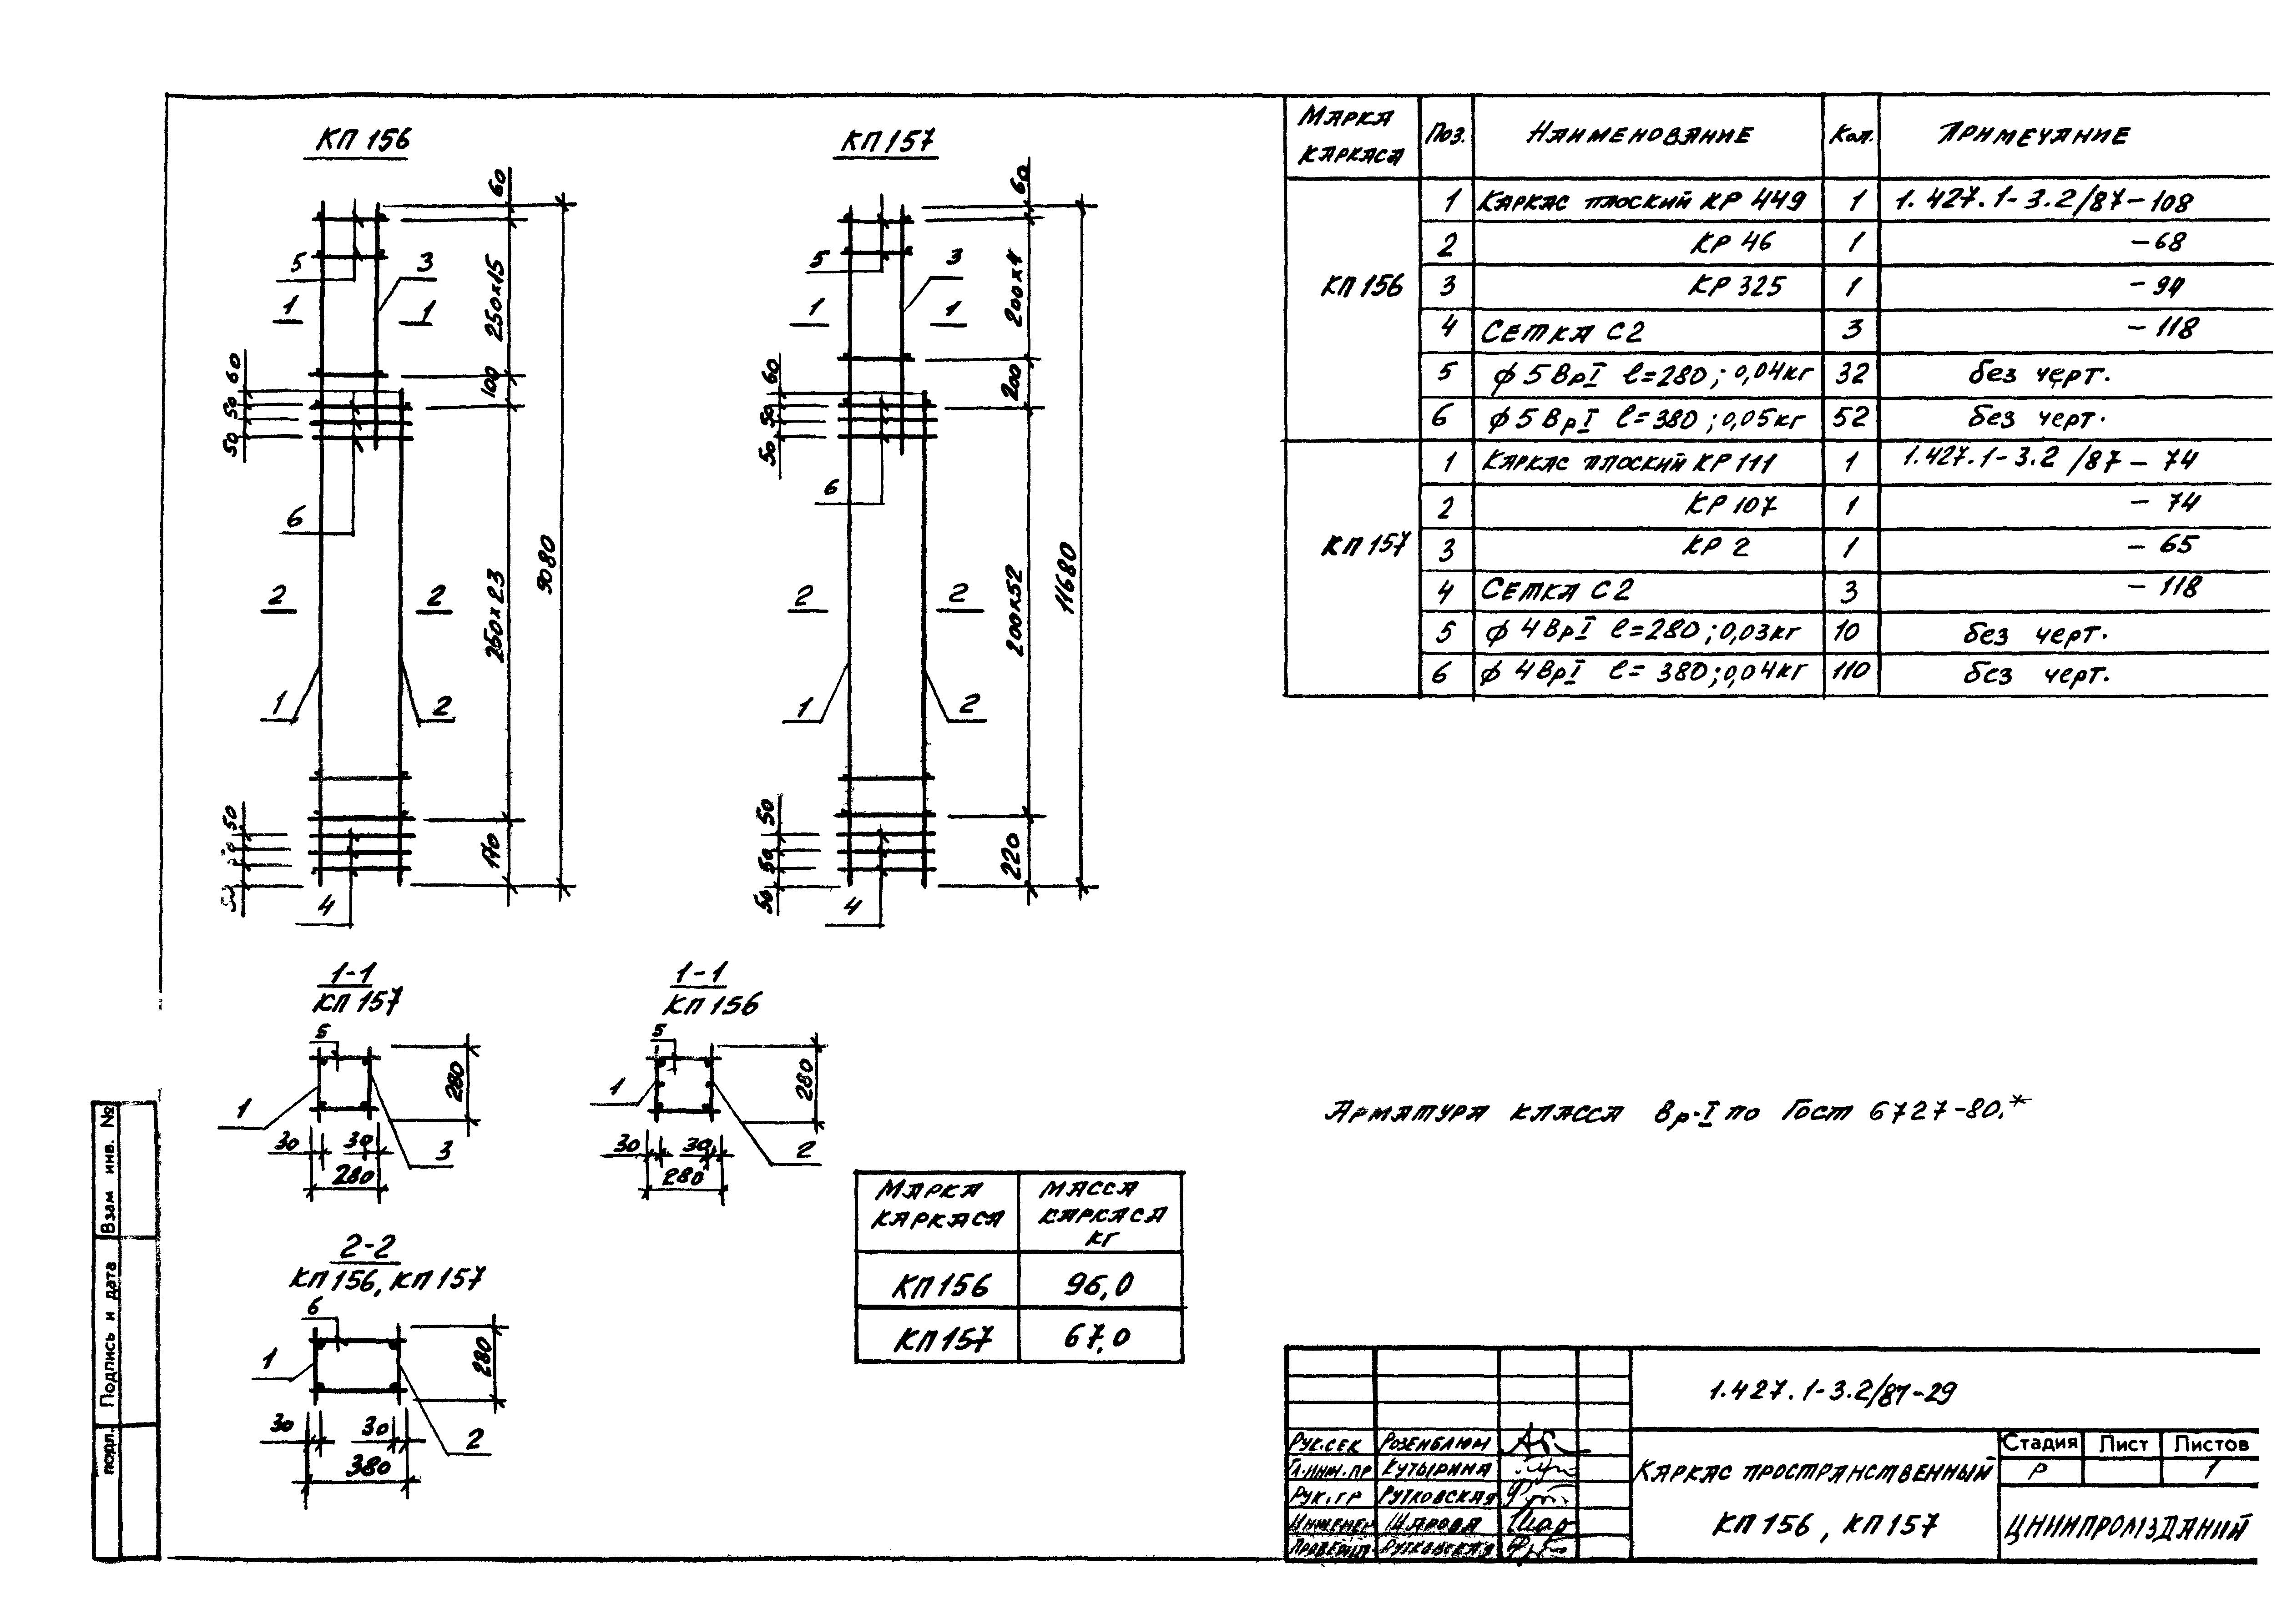 КП 156
60
250х15
100
250х23
170
9080
60
50
50
50
50
5
3
1
1
6
2
2
1
2
4
КП 157
60
200х4
200
200х52
220
11680
60
50
50
50
50
50
5
3
1
1
6
2
2
1
2
4
1-1
КП 157
5
1
3
280
30
30
280
1-1
КП 156
5
1
2
280
30
30
280
2-2
КП 156, КП 157
6
1
2
280
30
30
380
Марка каркаса Поз. Наименование Кол. Примечание
КП 156
1 Каркас плоский КР 449 1 1.427.1-3.2/87-108
2 КР 46 1 -68
3 КР 325 1 -94
4 Сетка С2 3 -118
5 ф 5 Вр I l=280; 0,04кг 32 без черт.
6 ф 5 Вр I l=380; 0,05кг 52 без черт.
КП 157
1 Каркас плоский КР 111 1 1.427.1-3.2/87-74
2 КР 107 1 -74
3 КР 2 1 -65
4 Сетка С2 3 -118
5 ф 4 Вр I l=280; 0,03кг 10 без черт.
6 ф 4 Вр I l=380; 0,04кг 110 без черт.
Арматура класса Вр-I по Гост 6727-80.*
Марка каркаса Масса каркаса кг
КП 156 96,0
КП 157 67,0
Взам инв. №
Подпись и дата
подл.
1.427.1-3.2/87-29
Рук.сек Розенблюм
Гл.инж.пр Кутырина
Рук.гр Рутковская
Инженер Шарова
Рутковская
Каркас пространственный
КП 156, КП 157
Стадия Лист Листов
Р 1
ЦНИИПРОМЗДАНИЙ